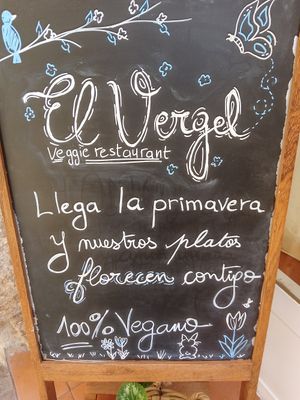 El Vergel
Veggie restaurant
Llega la primavera
y nuestros platos
florecen contigo
100% Vegano